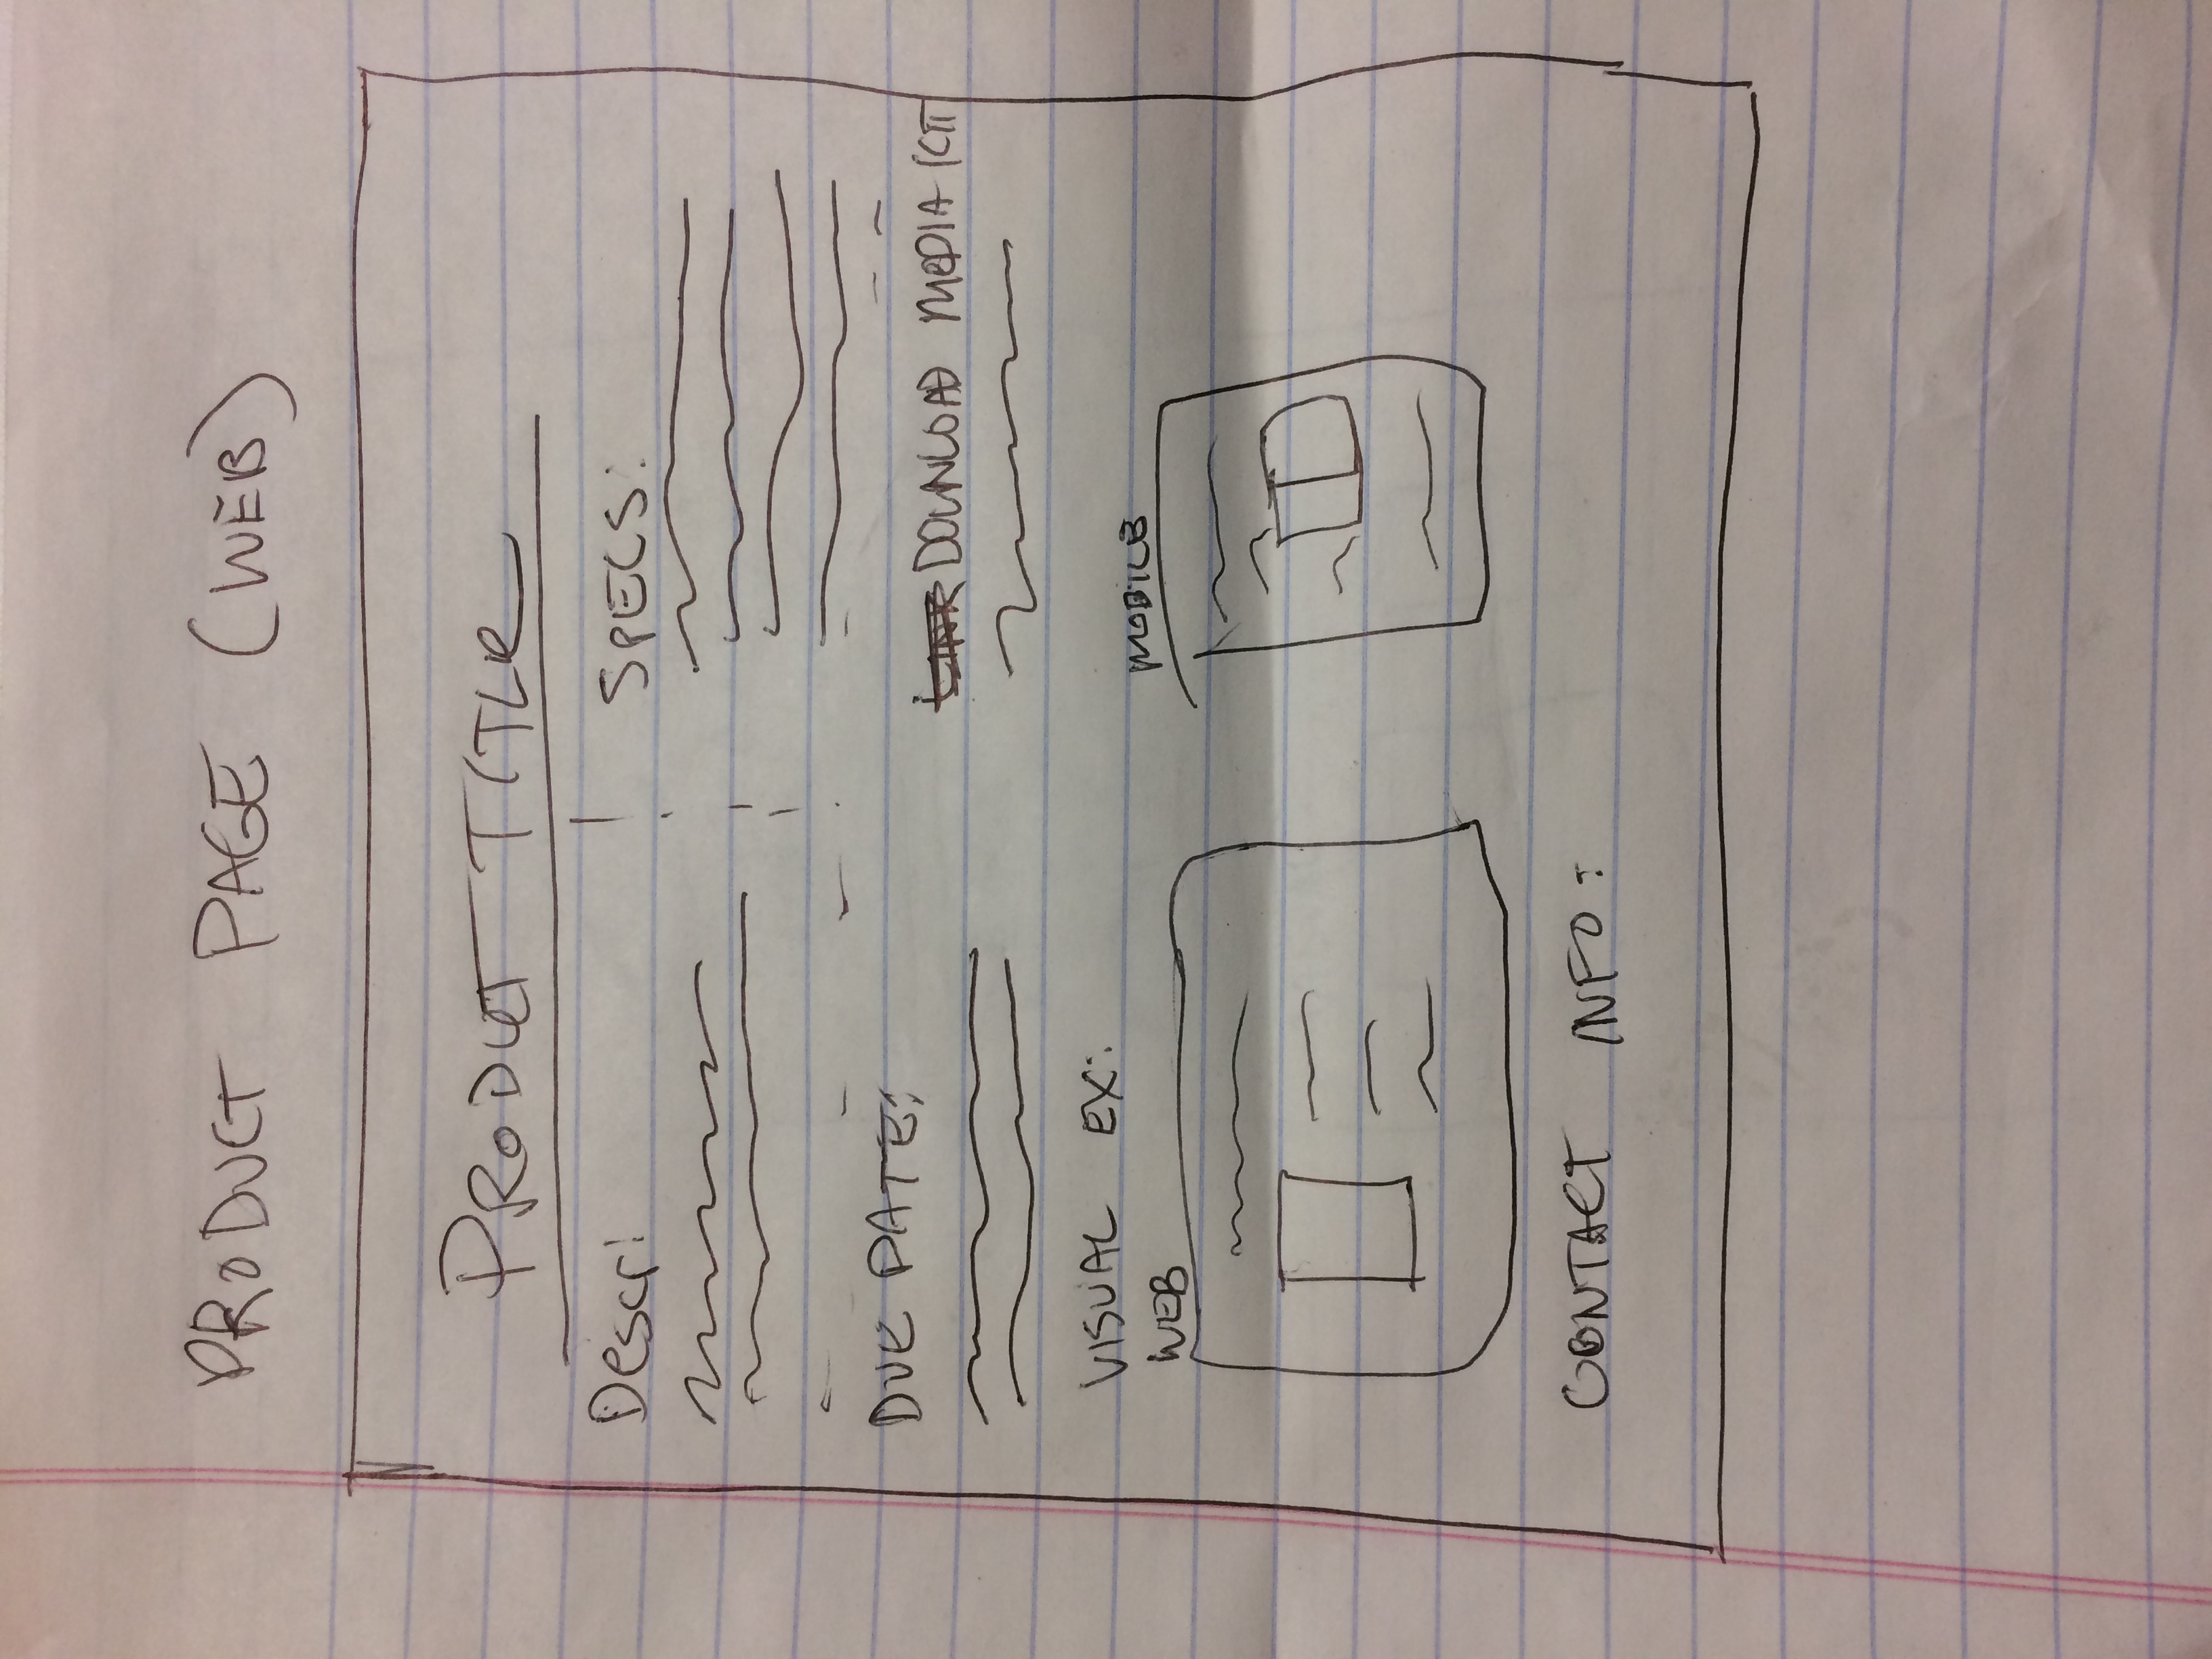 PRODUCT PAGE (WEB)
PRODUCT TITLE
Descr:
SPECS:
DUE DATE:
DOWNLOAD MEDIA KIT
VISUAL EX:
WEB
MOBILE
CONTACT INFO: